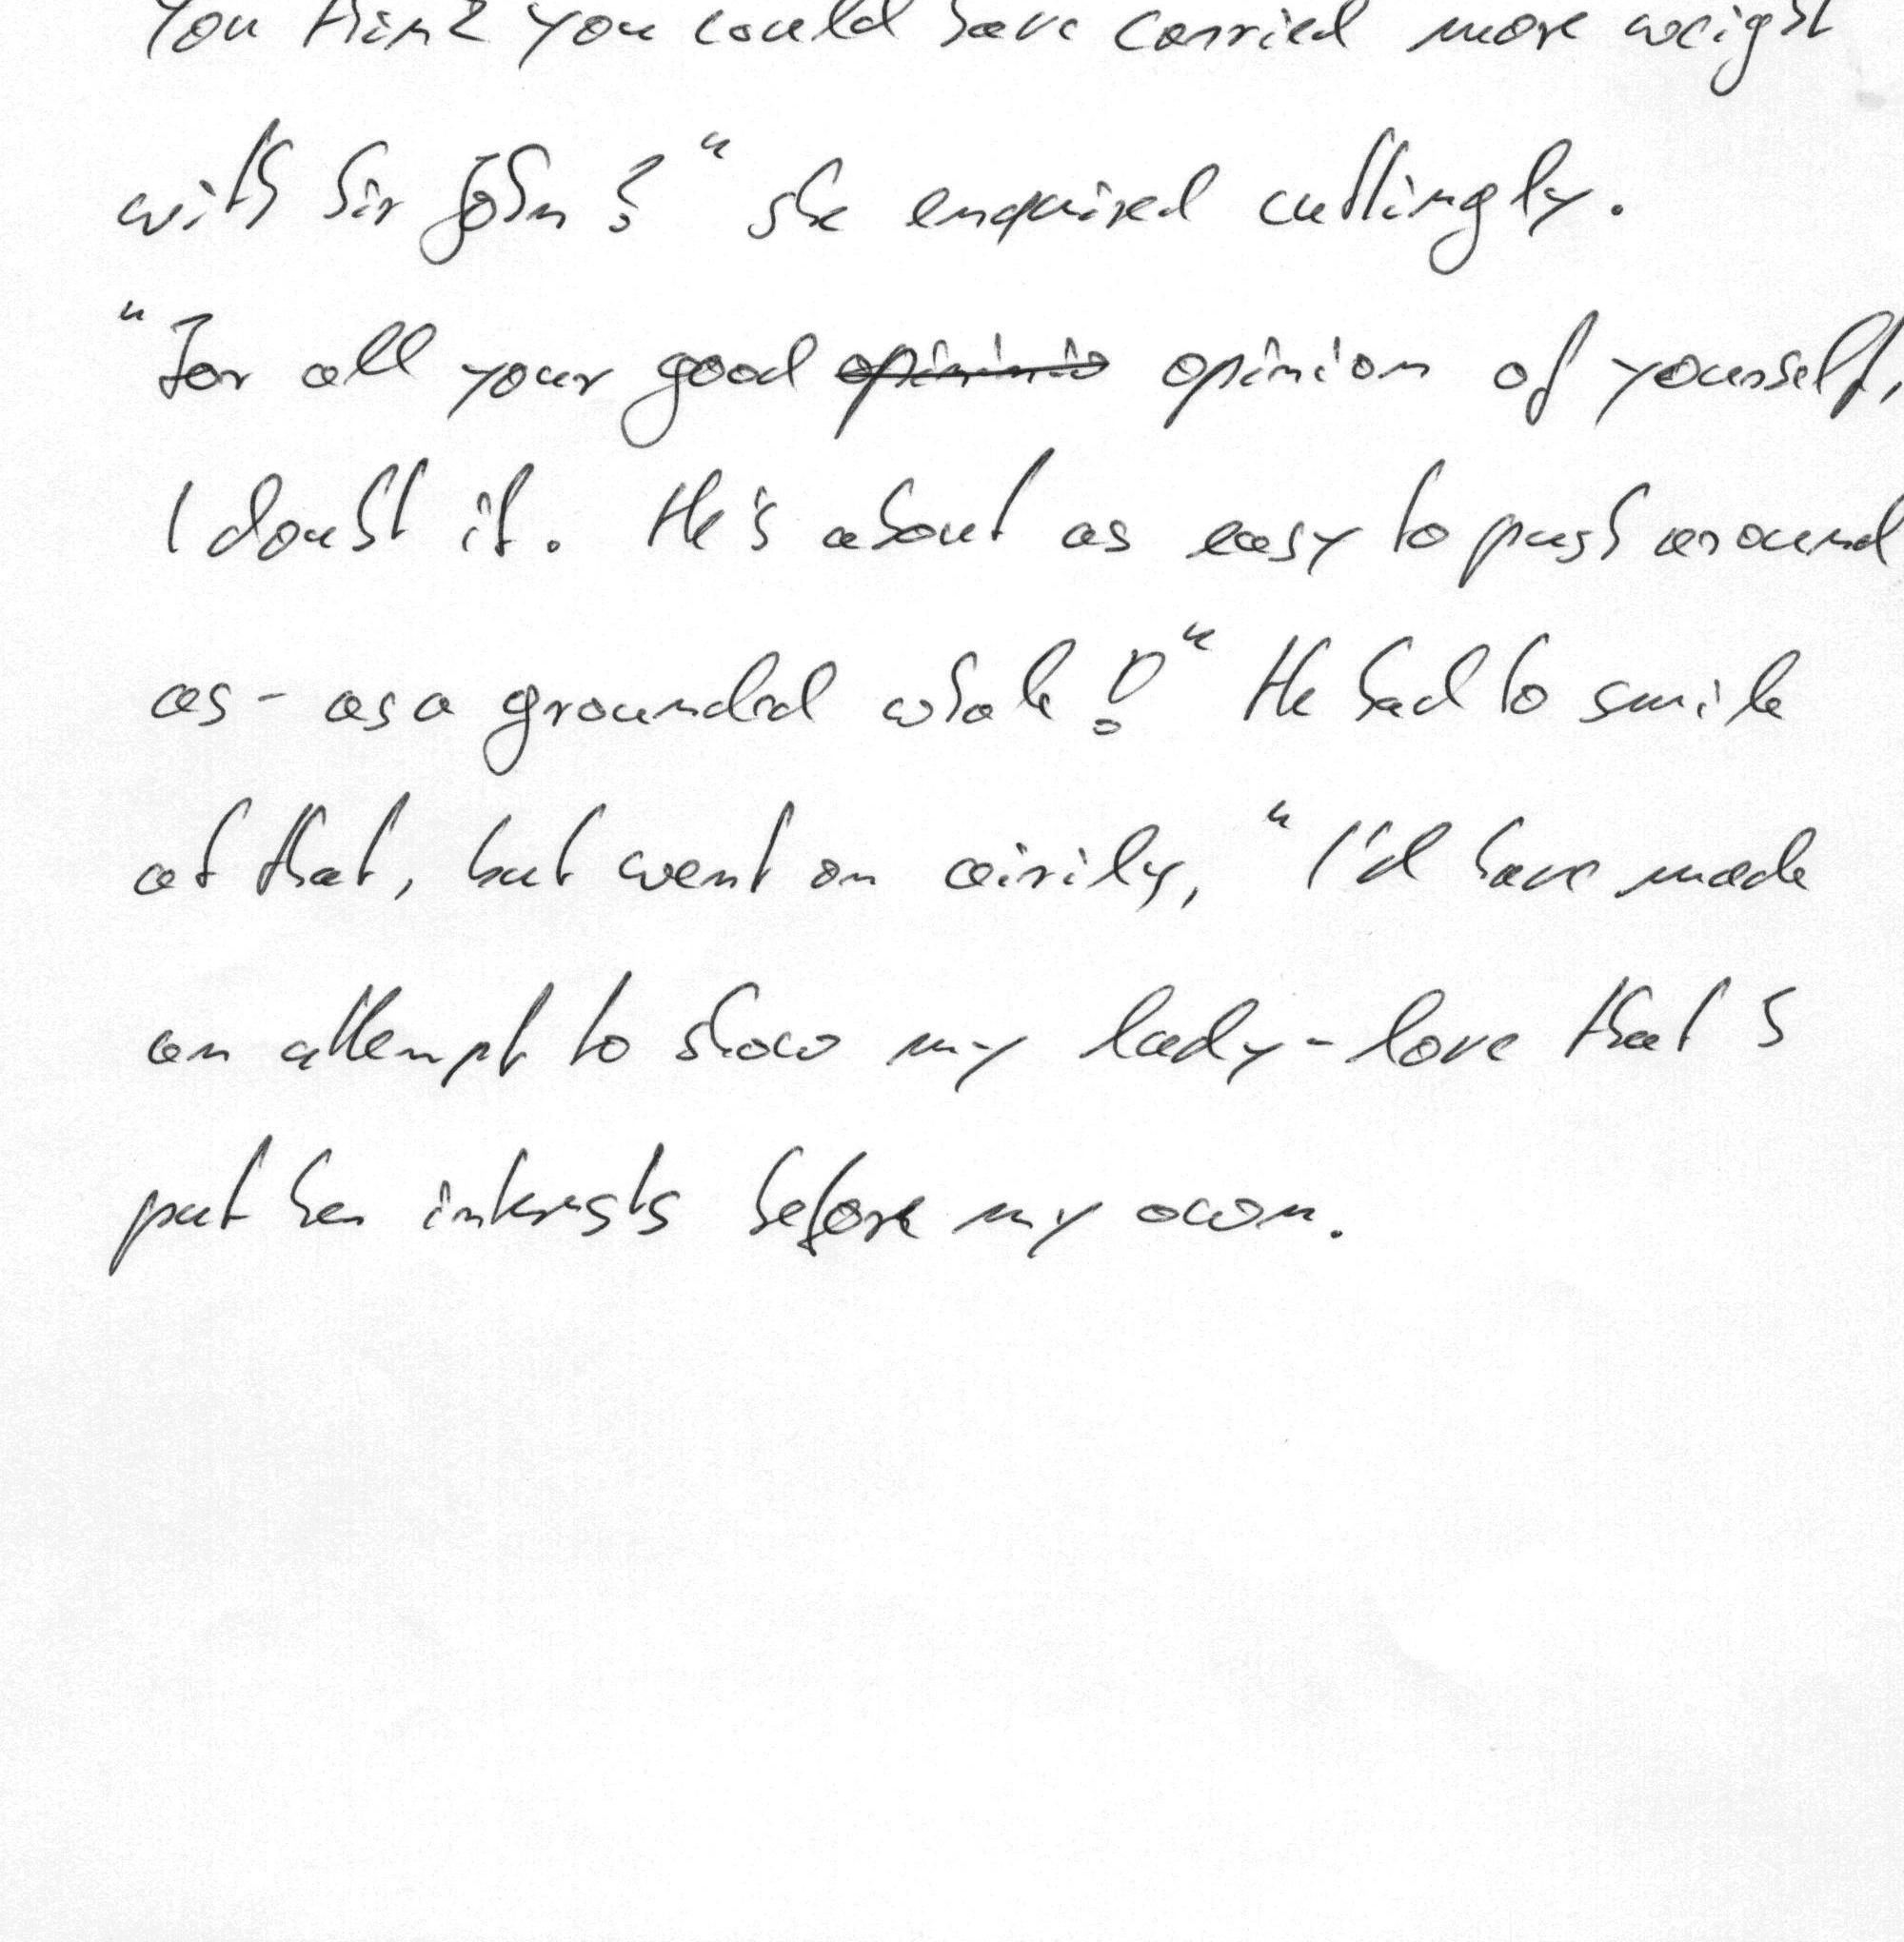 You think you could have carried more weight
with Sir John?" she enquired cuttingly.
"For all your good opininio opinion of yourself,
I doubt it. He's about as easy to push around
as - as a grounded whale!" He had to smile
at that, but went on airily, "I'd have made
an attempt to show my lady-love that I
put her interests before my own.